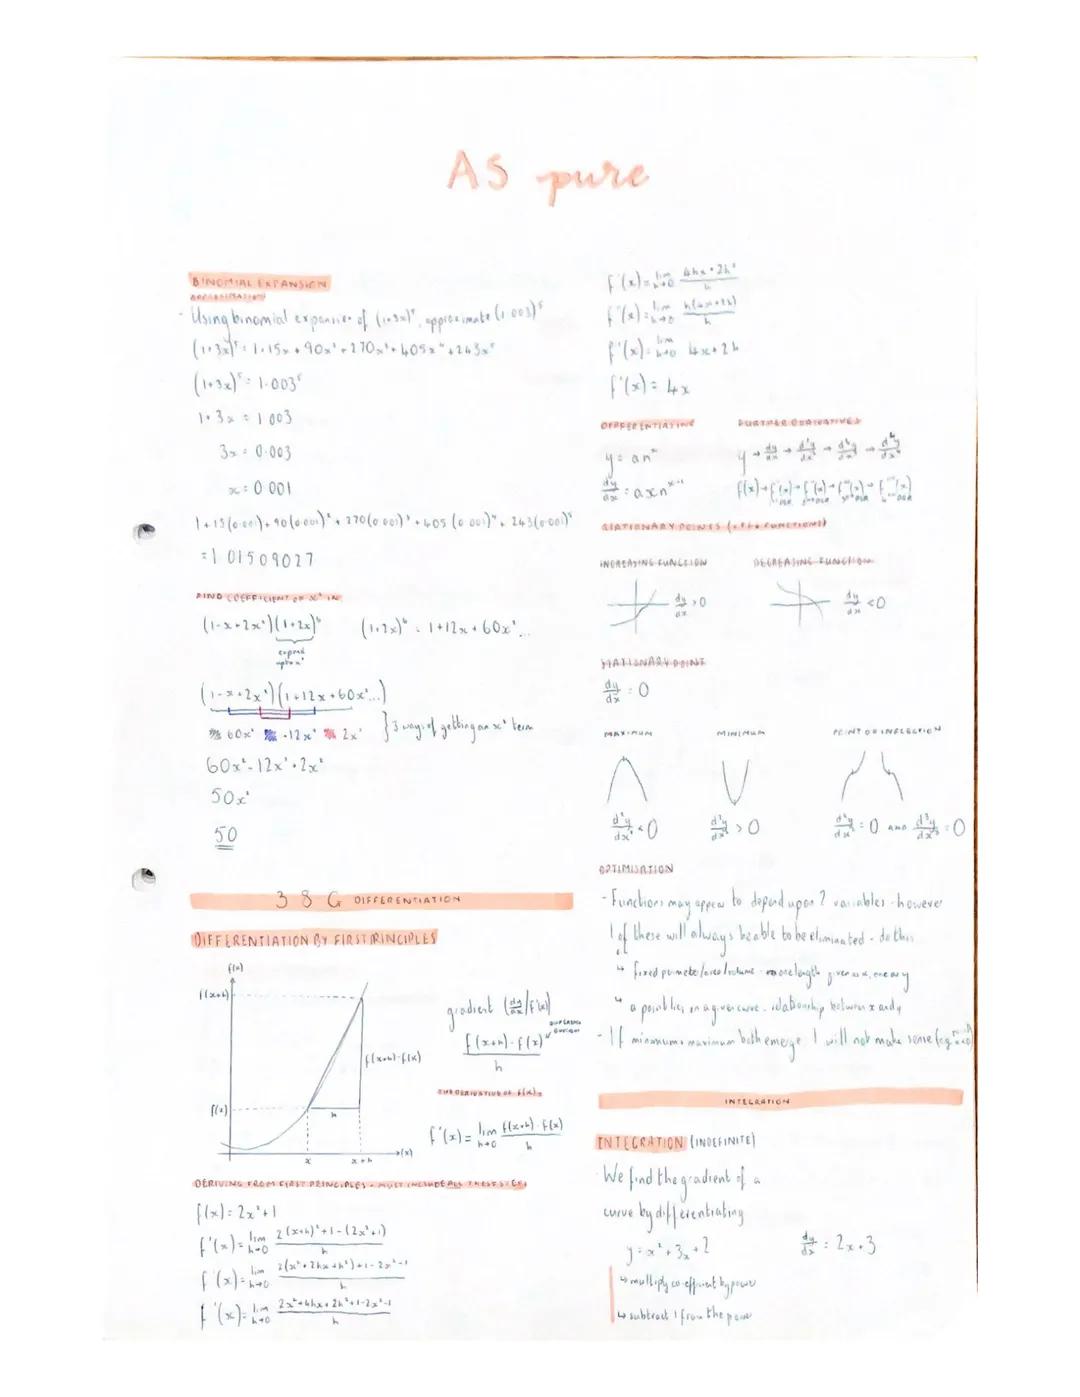 AS pure
BINOMIAL EXPANSION
APPROXIMATION
- Using binomial expansion of (1+3x)⁵, approximate (1.003)⁵
(1+3x)⁵ = 1+15x+90x²+270x³+405x⁴+243x⁵
(1+3x)⁵ = 1.003⁵
1+3x = 1.003
3x = 0.003
x = 0.001
1+15(0.001)+90(0.001)²+270(0.001)³+405(0.001)⁴+243(0.001)⁵
=1.01509027
FIND COEFFICIENT OF x² IN:
(1-x+2x²)(1+2x)⁶ (1+2x)⁶ = 1+12x+60x²...
expand
up to x²
(1-x+2x²)(1+12x+60x²...)
60x² -12x² 2x² } 3 ways of getting an x² term
60x²-12x²+2x²
50x²
50
38G DIFFERENTIATION
DIFFERENTIATION BY FIRST PRINCIPLES
f(x)
f(x+h)
f(x+h)-f(x)
f(x)
h
x x+h (x)
gradient (dy/dx / f'(x))
f(x+h)-f(x)
h
THE DERIVATIVE OF f(x):
f'(x) = lim h→0 f(x+h)-f(x) / h
DERIVING FROM FIRST PRINCIPLES - MUST INCLUDE ALL THESE STEPS
f(x) = 2x²+1
f'(x) = lim h→0 2(x+h)²+1-(2x²+1) / h
f'(x) = lim h→0 2(x²+2hx+h²)+1-2x²-1 / h
f'(x) = lim h→0 2x²+4hx+2h²+1-2x²-1 / h
f'(x) = lim h→0 4hx+2h² / h
f'(x) = lim h→0 h(4x+2h) / h
f'(x) = lim h→0 4x+2h
f'(x) = 4x
DIFFERENTIATING FURTHER DERIVATIVES
y = an^x y → dy/dx → d²y/dx² → d³y/dx³ → d⁴y/dx⁴
dy/dx = axn^x-1 f(x) → f'(x) → f''(x) → f'''(x) → f''''(x)
STATIONARY POINTS (+ FUNCTIONS)
INCREASING FUNCTION DECREASING FUNCTION
dy/dx > 0 dy/dx < 0
STATIONARY POINT
dy/dx = 0
MAXIMUM MINIMUM POINT OF INFLECTION
d²y/dx² < 0 d²y/dx² > 0 d²y/dx² = 0 AND d³y/dx³ = 0
OPTIMISATION
- Functions may appear to depend upon 2 variables - however
1 of these will always be able to be eliminated - do this
↳ fixed perimeter/area/volume - one length given as x, one as y
↳ a point lies on a given curve - relationship between x and y
- If minimum + maximum both emerge 1 will not make sense (eg.
INTEGRATION
INTEGRATION (INDEFINITE)
- We find the gradient of a
curve by differentiating
y = x²+3x+2 dy/dx = 2x+3
↳ multiply co-efficient by power
↳ subtract 1 from the power